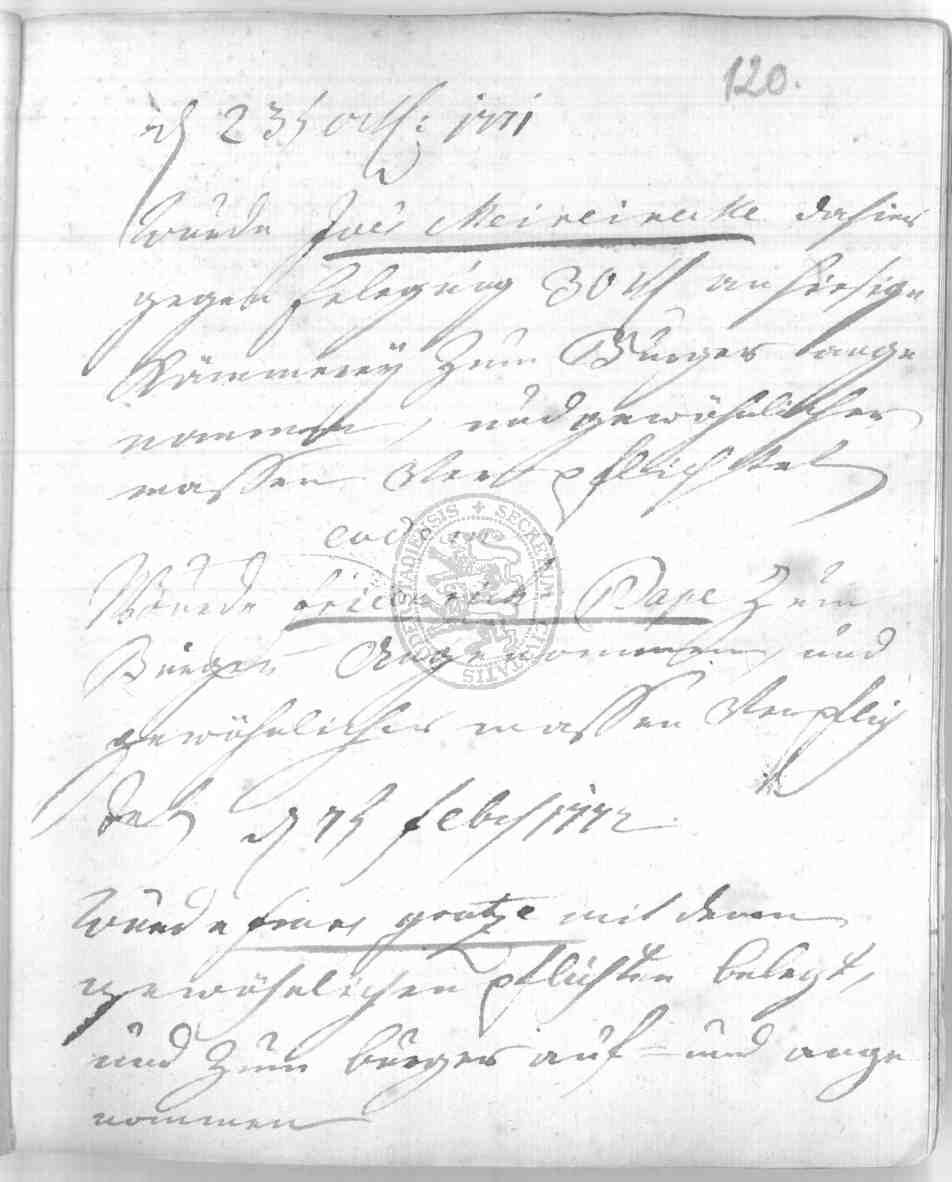 120.
d 23t octb: 1771
wurde Joês Meinecke dahier
gegen Erlegung 30 rth an hiesige
Kämmerey zum Bürger ange
nommen, und gewöhnlicher
massen Verpflichtet
eodem
Wurde Pape zum
Bürger Angenommen, und
gewöhnlicher massen Verpflich
tet d 7t feb 1772
wurde gratze mit denen
gewöhnlichen pflichten belegt,
und zum bürger auf- und ange
nommen
SECRETUM